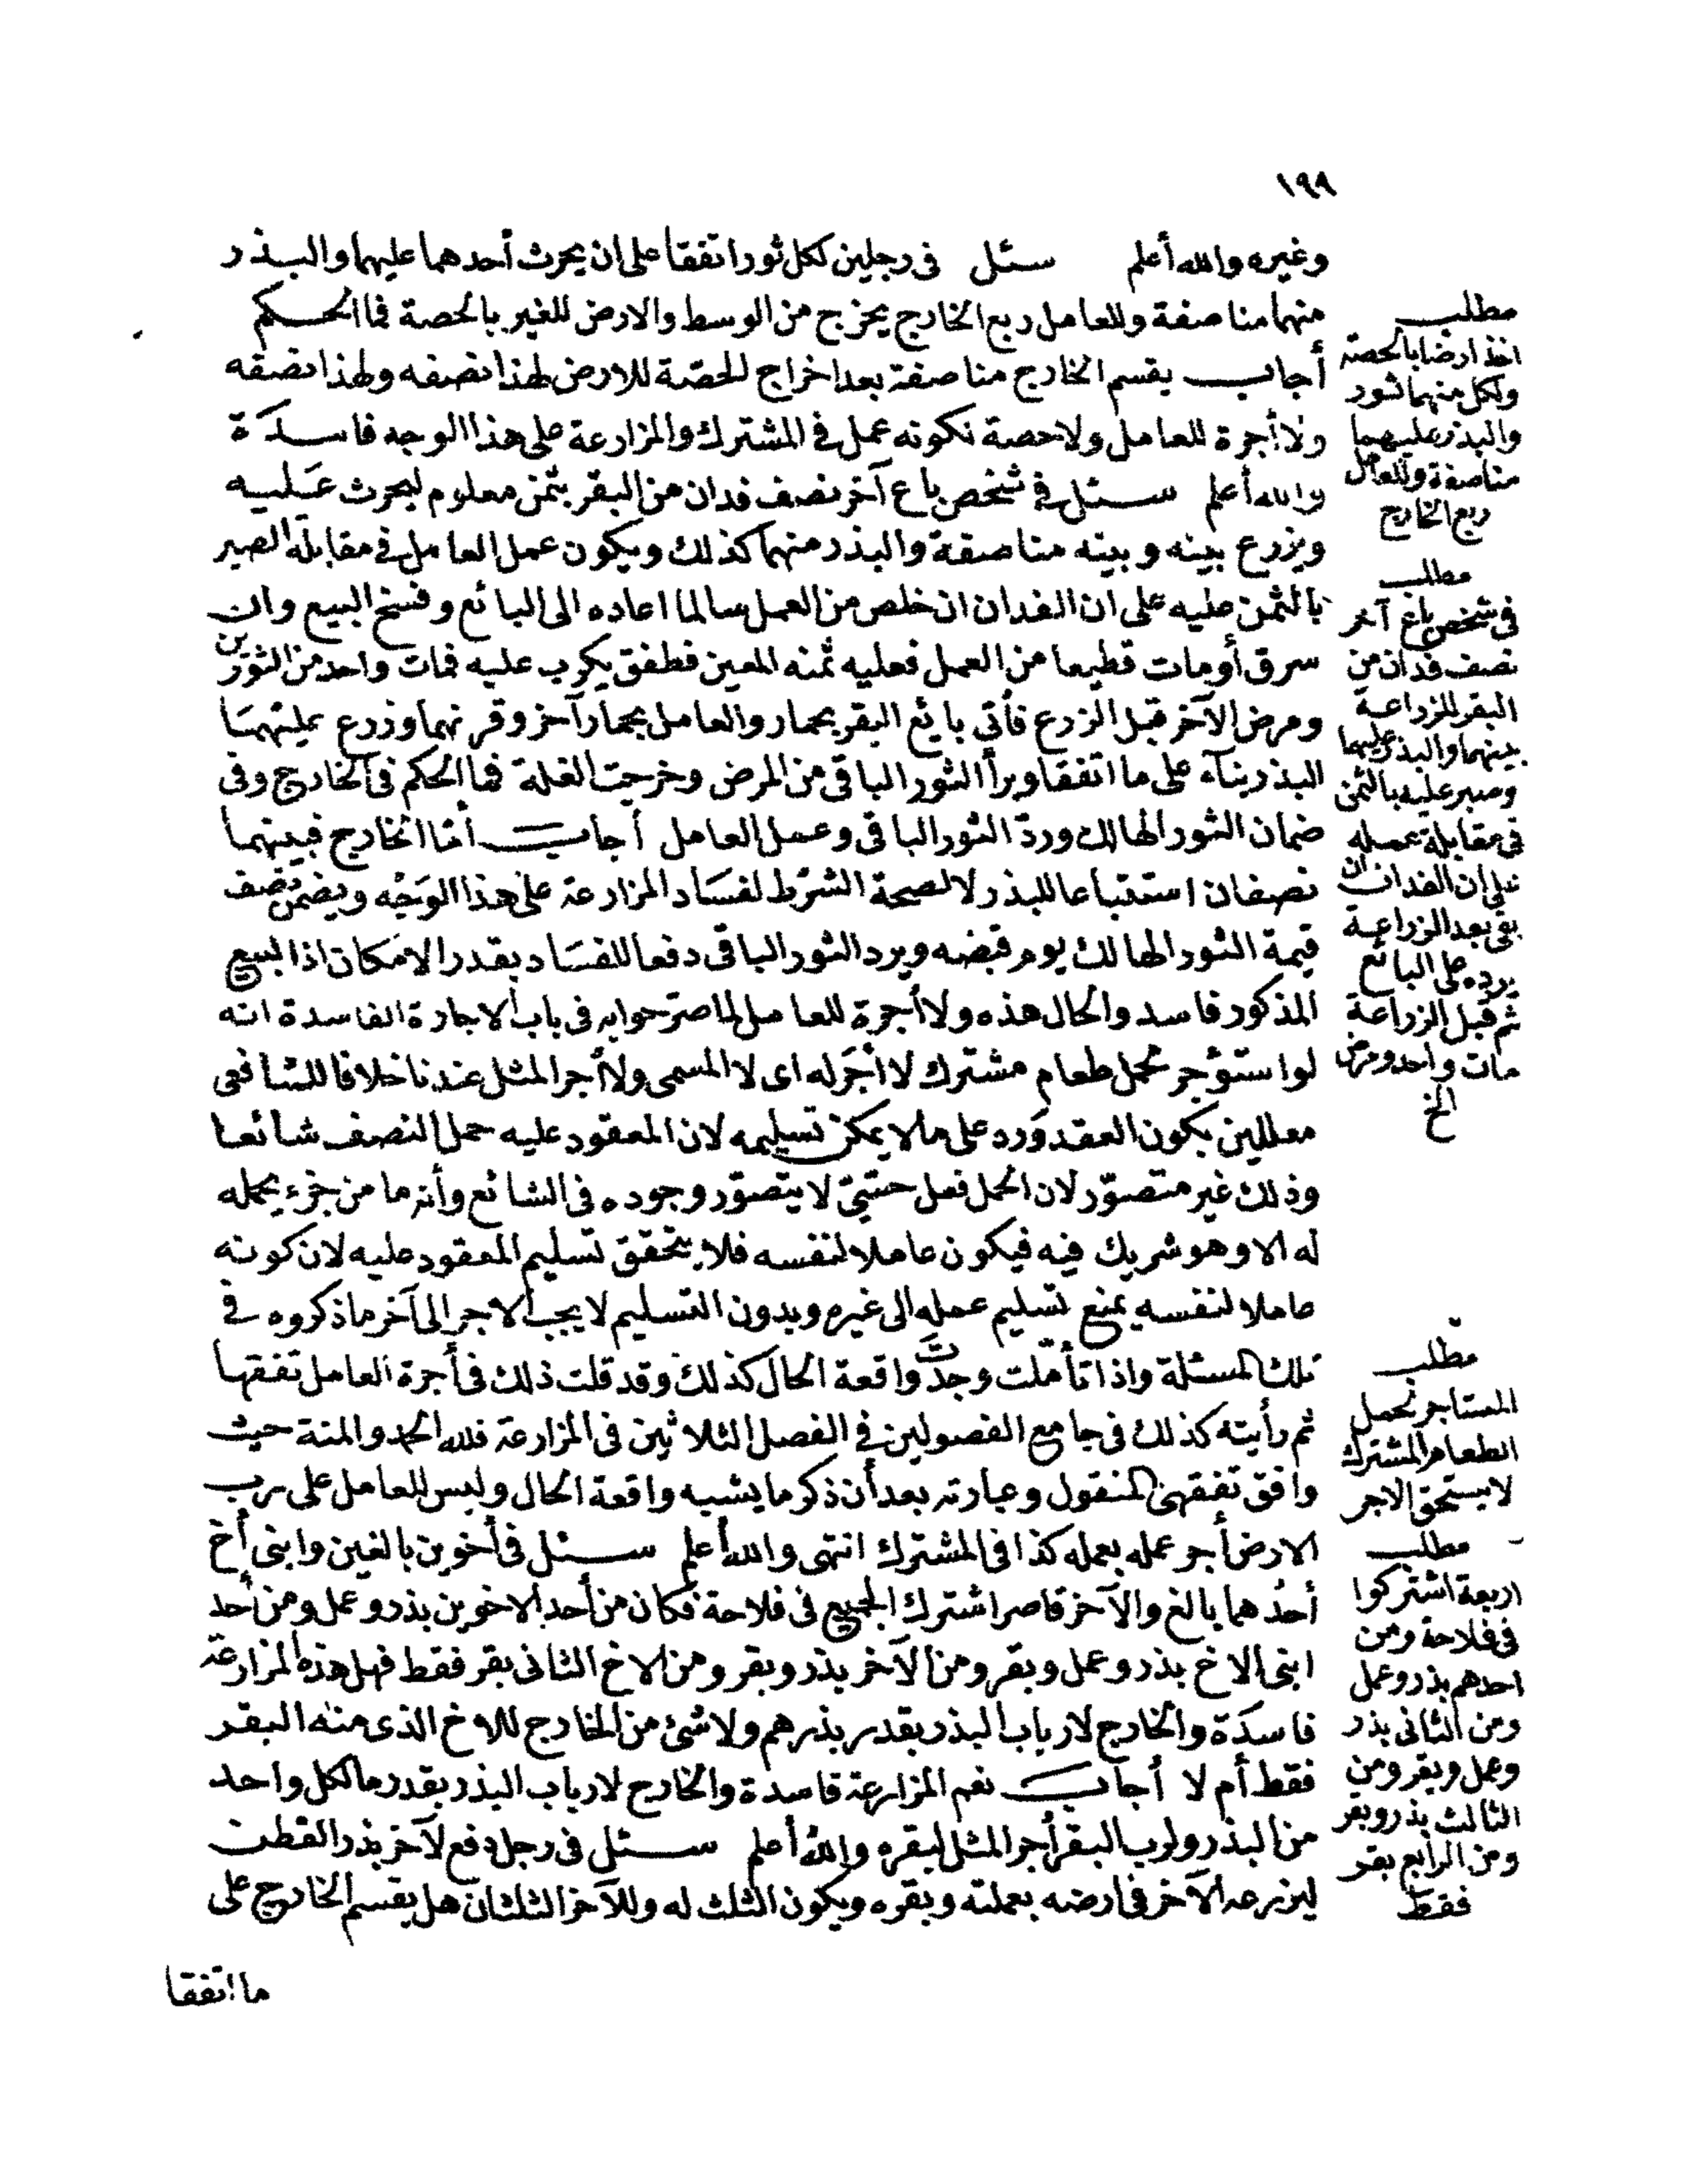 ١٩٨
وغيره والله أعلم سئل في رجلين لكل ثور اتفقا على ان يحرث أحدهما عليهما والبذر
منهما مناصفة وللعامل ربع الخارج يخرج من الوسط والارض للغير بالحصة فما الحكم
أجاب يقسم الخارج مناصفة بعد اخراج الحصة للارض لهذا نصفه ولهذا نصفه
ولا أجرة للعامل ولا حصة لكونه عمل في المشترك والمزارعة على هذا الوجه فاسدة
والله أعلم سئل في شخص باع آخر نصف فدان من البقر بثمن معلوم ليحرث عليه
ويزرع بينه وبينه مناصفة والبذر منهما كذلك ويكون عمل العامل في مقابلة الصبر
بالثمن عليه على ان الفدان ان خلص من العمل سالما اعاده الى البائع وفسخ البيع وان
سرق أو مات قطيعا من العمل فعليه ثمنه المعين فطفق يكرب عليه فمات واحد من الثورين
ومرض الآخر قبل الزرع فأتي بايع البقر بحمار والعامل بحمار آخر وقرنهما وزرع عليهما
البذر بناء على ما اتفقا وبرأ الثور الباقي من المرض وخرجت الغلة فما الحكم في الخارج وفي
ضمان الثور الهالك وردّ الثور الباقي وعمل العامل أجاب أمّا الخارج فبينهما
نصفان استتباعا للبذر لا لصحة الشرط لفساد المزارعة على هذا الوجه ويضمن نصف
قيمة الثور الهالك يوم قبضه ويرد الثور الباقي دفعا للفساد بقدر الامكان اذ البيع
المذكور فاسد والحال هذه ولا أجرة للعامل لما صرّحوا به في باب الاجارة الفاسدة انه
لو استؤجر لحمل طعام مشترك لا أجر له اى لا المسمى ولا أجر المثل عندنا خلافا للشافعي
معللين بكون العقد ورد على ما لا يمكن تسليمه لان المعقود عليه حمل النصف شائعا
وذلك غير متصوّر لان الحمل فعل حسّيّ لا يتصوّر وجوده في الشائع وأنه ما من جزء يحمله
له الا وهو شريك فيه فيكون عاملا لنفسه فلا يتحقق تسليم المعقود عليه لان كونه
عاملا لنفسه يمنع تسليم عمله الى غيره وبدون التسليم لا يجب الاجر الى آخر ما ذكروه في
تلك المسئلة واذا تأملت وجدت واقعة الحال كذلك وقد قلت ذلك في أجرة العامل تفقها
ثم رأيته كذلك في جامع الفصولين في الفصل الثلاثين في المزارعة فلله الحمد والمنة حيث
وافق تفقهي المنقول وعبارته بعد أن ذكر ما يشبه واقعة الحال وليس للعامل على رب
الارض أجر عمله بعمله كذا في المشترك انتهى والله أعلم سئل في أخوين بالغين وابنى أخ
أحدهما بالغ والآخر قاصر اشترك الجميع في فلاحة فكان من أحد الاخوين بذر وعمل ومن أحد
ابنى الاخ بذر وعمل وبقر ومن الآخر بذر وبقر ومن الاخ الثانى بقر فقط فهل هذه المزارعة
فاسدة والخارج لارباب البذر بقدر بذرهم ولا شئ من الخارج للاخ الذى منه البقر
فقط أم لا أجاب نعم المزارعة فاسدة والخارج لارباب البذر بقدر ما لكل واحد
من البذر ولرب البقر أجر المثل لبقره والله أعلم سئل في رجل دفع لآخر بذر القطن
ليزرعه الآخر في ارضه بعملته وبقره ويكون الثلث له وللآخر الثلثان هل يقسم الخارج على
ما اتفقا
مطلب
اخذ ارضا بالحصة
ولكل منهما ثور
والبذر عليهما
مناصفة وللعامل
ربع الخارج
مطلب
في شخص باع آخر
نصف فدان من
البقر للزراعة
بينهما والبذر عليهما
وصبر عليه بالثمن
في مقابلة عمله
على ان الفدان ان
بقى بعد الزراعة
يرده على البائع
ثم قبل الزراعة
مات واحد ومرض
الخ
مطلب
المستاجر لحمل
الطعام المشترك
لا يستحق الاجر
مطلب
اربعة اشتركوا
في فلاحة ومن
احدهم بذر وعمل
ومن الثانى بذر
وعمل وبقر ومن
الثالث بذر وبقر
ومن الرابع بقر
فقط